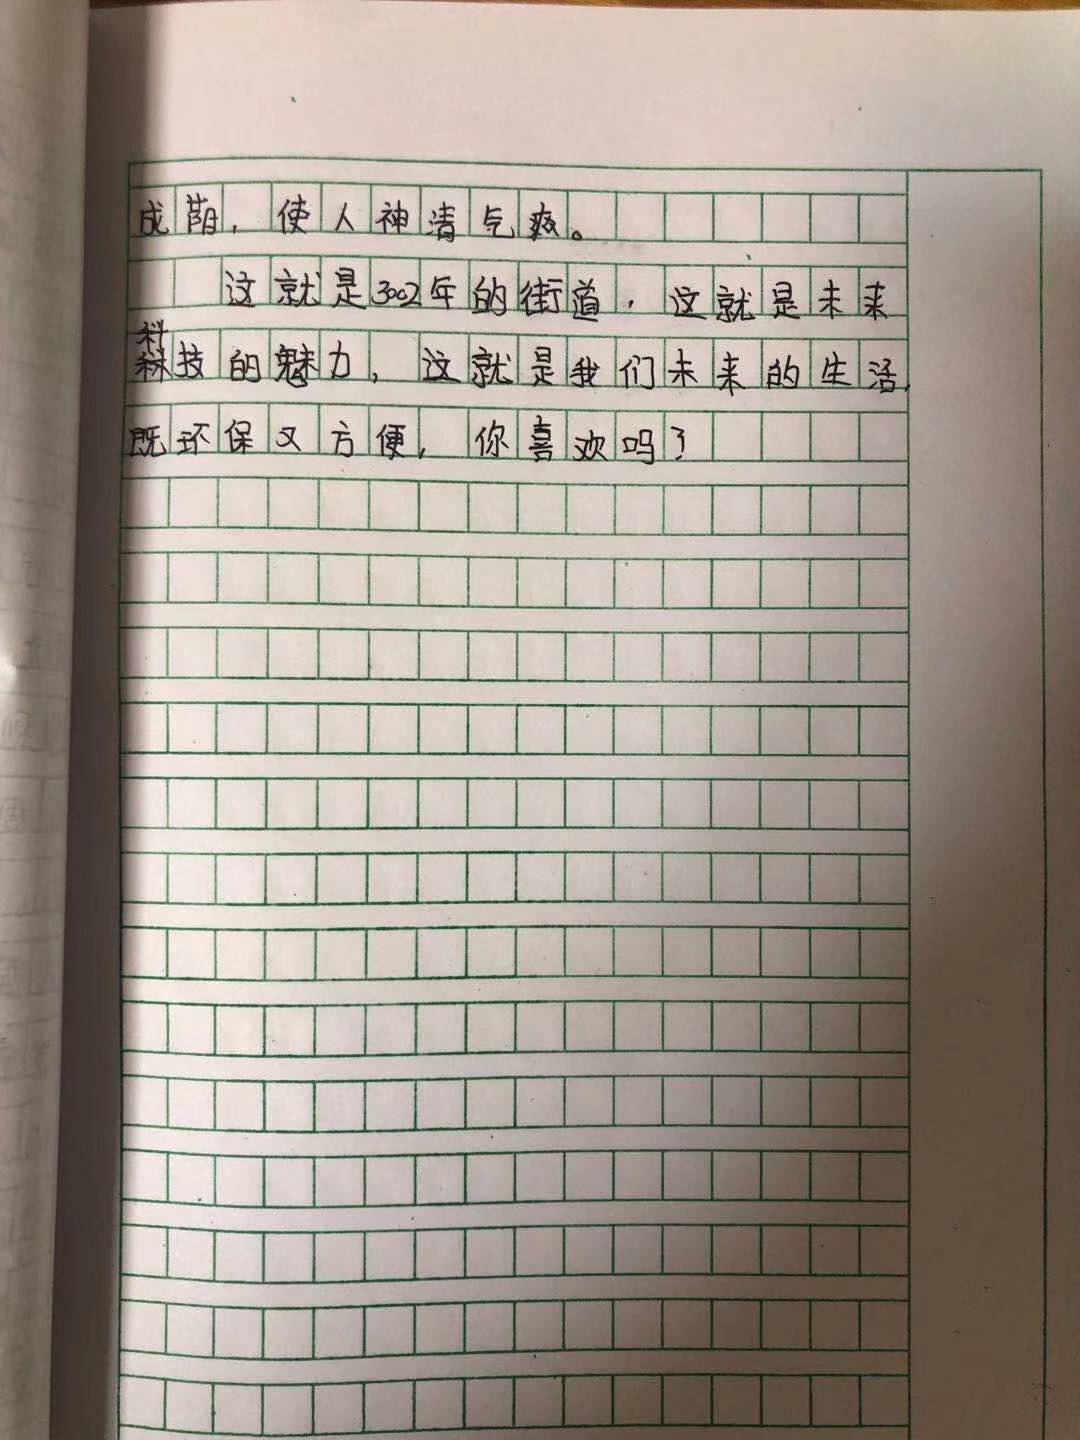 成荫，使人神清气爽。
这就是3002年的街道，这就是未来
科技的魅力，这就是我们未来的生活，
既环保又方便，你喜欢吗？